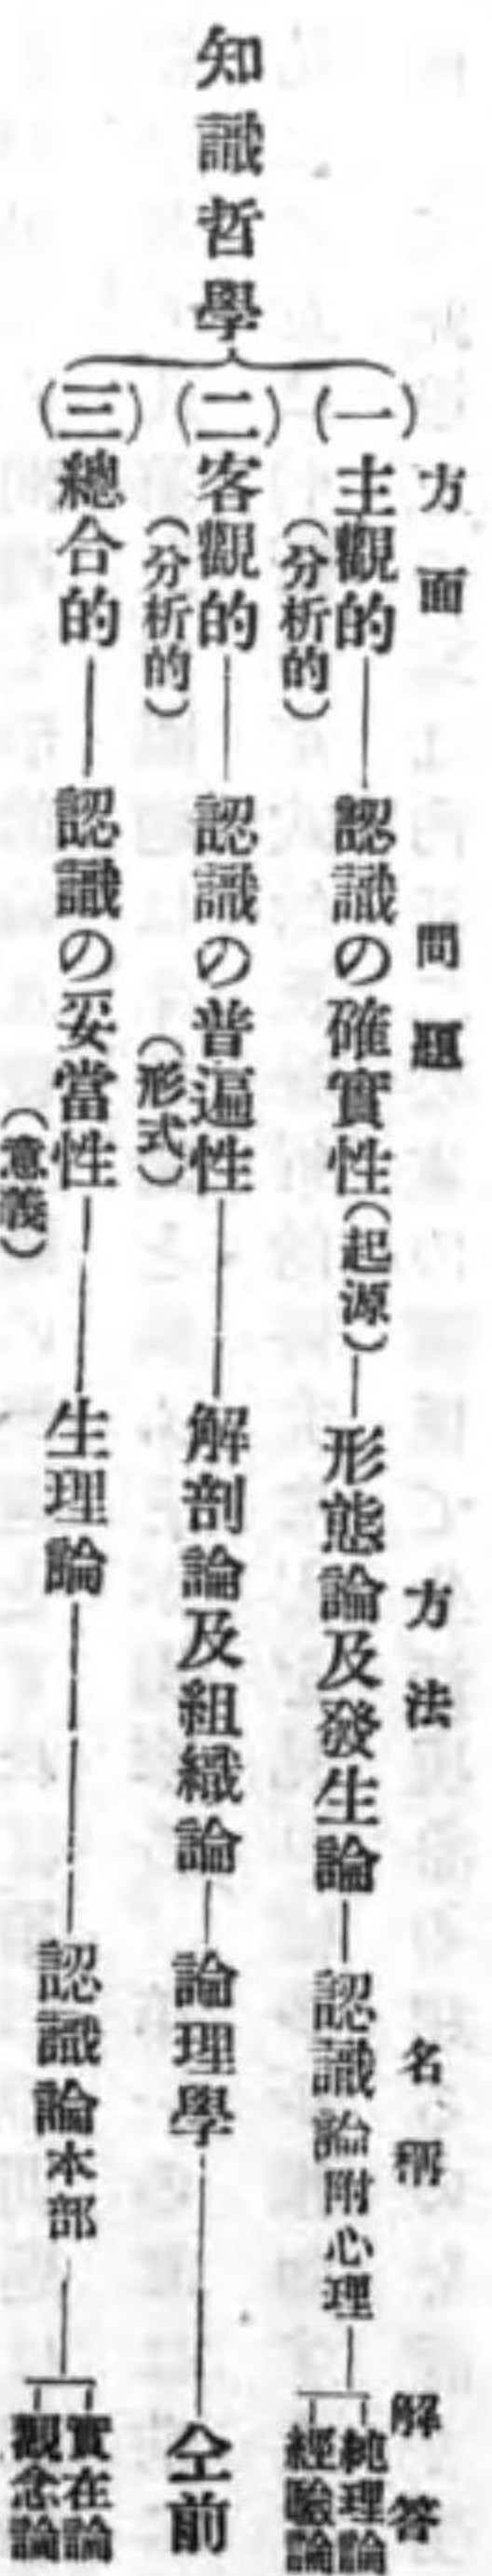 知識哲學
方面　問題　方法　名稱　解答
(一)主觀的(分析的)——認識の確實性(起源)—形態論及發生論—認識論附心理—純理論
經驗論
(二)客觀的(分析的)——認識の普遍性(形式)——解剖論及組織論—論理學——仝前
(三)總合的——認識の妥當性(意義)——生理論——認識論本部—實在論
觀念論